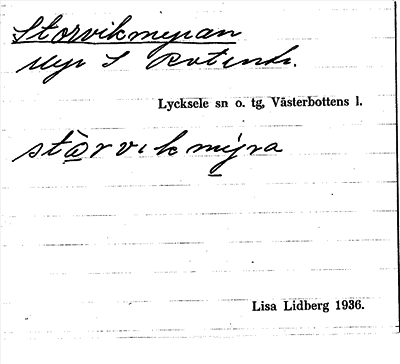 Storvikmyran
Myr S
Lycksele sn o. tg, Västerbottens l.
stårvikmýra
Lisa Lidberg 1936.